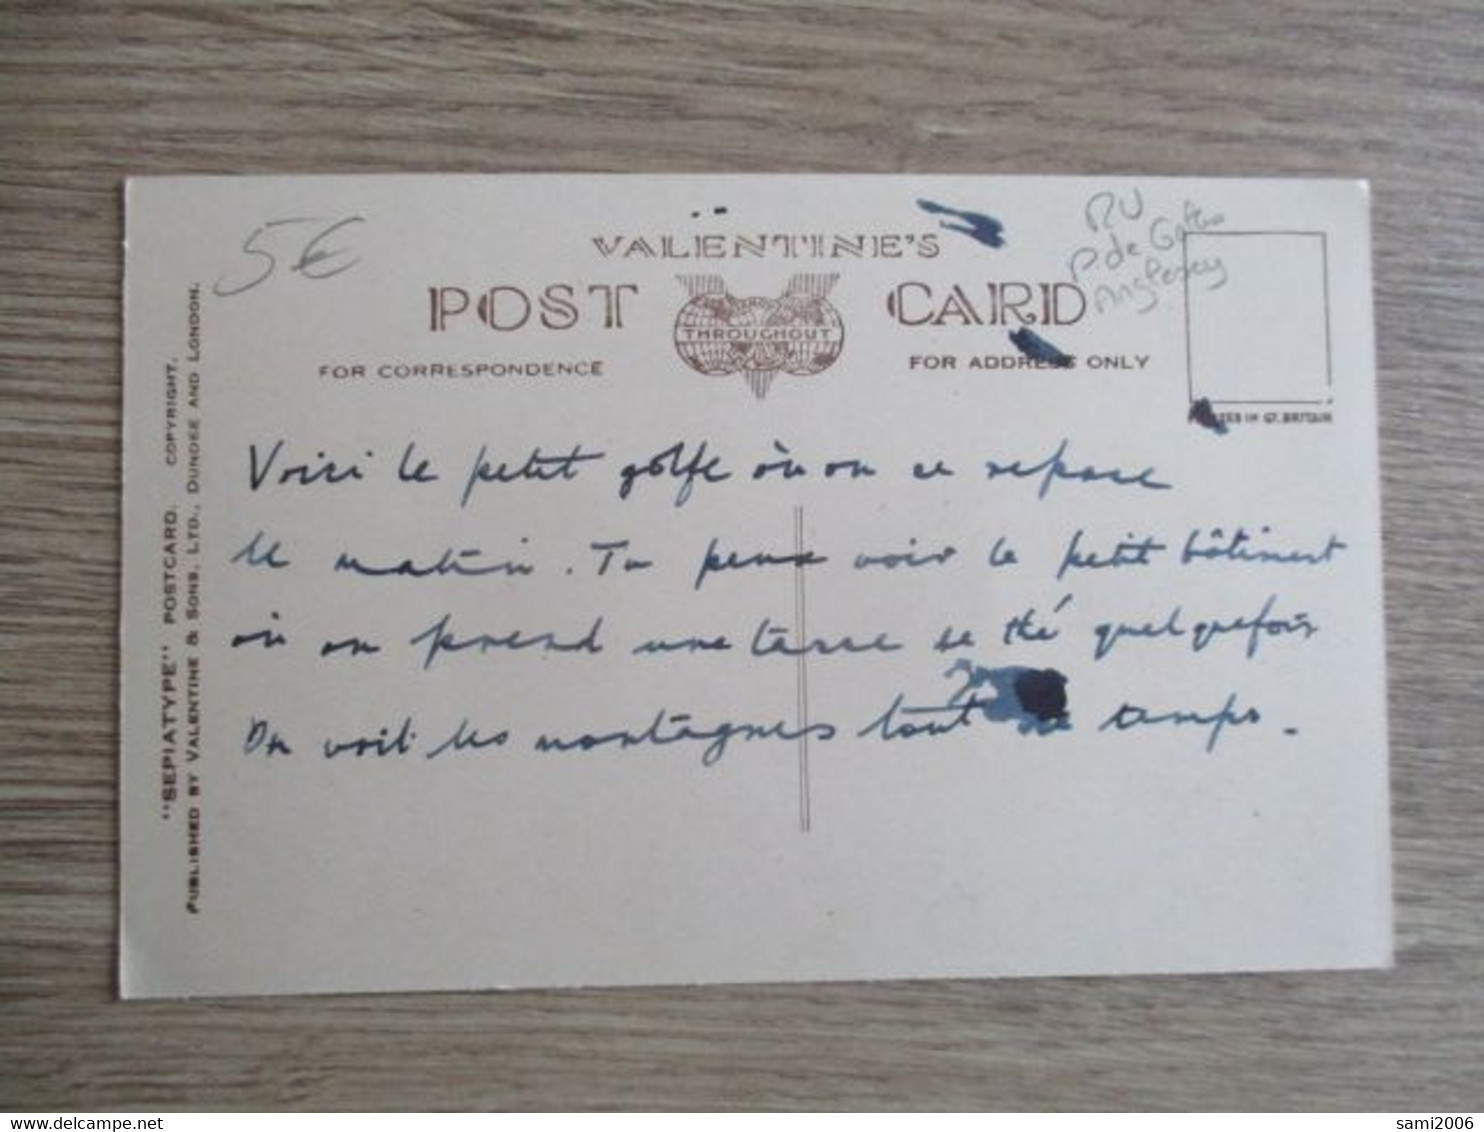 5€
RU
P de Galles
Anglesey
VALENTINE'S
POST CARD
THROUGHOUT
FOR CORRESPONDENCE
FOR ADDRESS ONLY
IN GT. BRITAIN
"SEPIATYPE" POSTCARD. COPYRIGHT.
PUBLISHED BY VALENTINE & SONS, LTD., DUNDEE AND LONDON.
Voici le petit golfe où on se repose
le matin. Tu peux voir le petit bâtiment
où on prend une tasse de thé quelquefois
On voit les montagnes tout le temps.
delcampe.net
sami2006